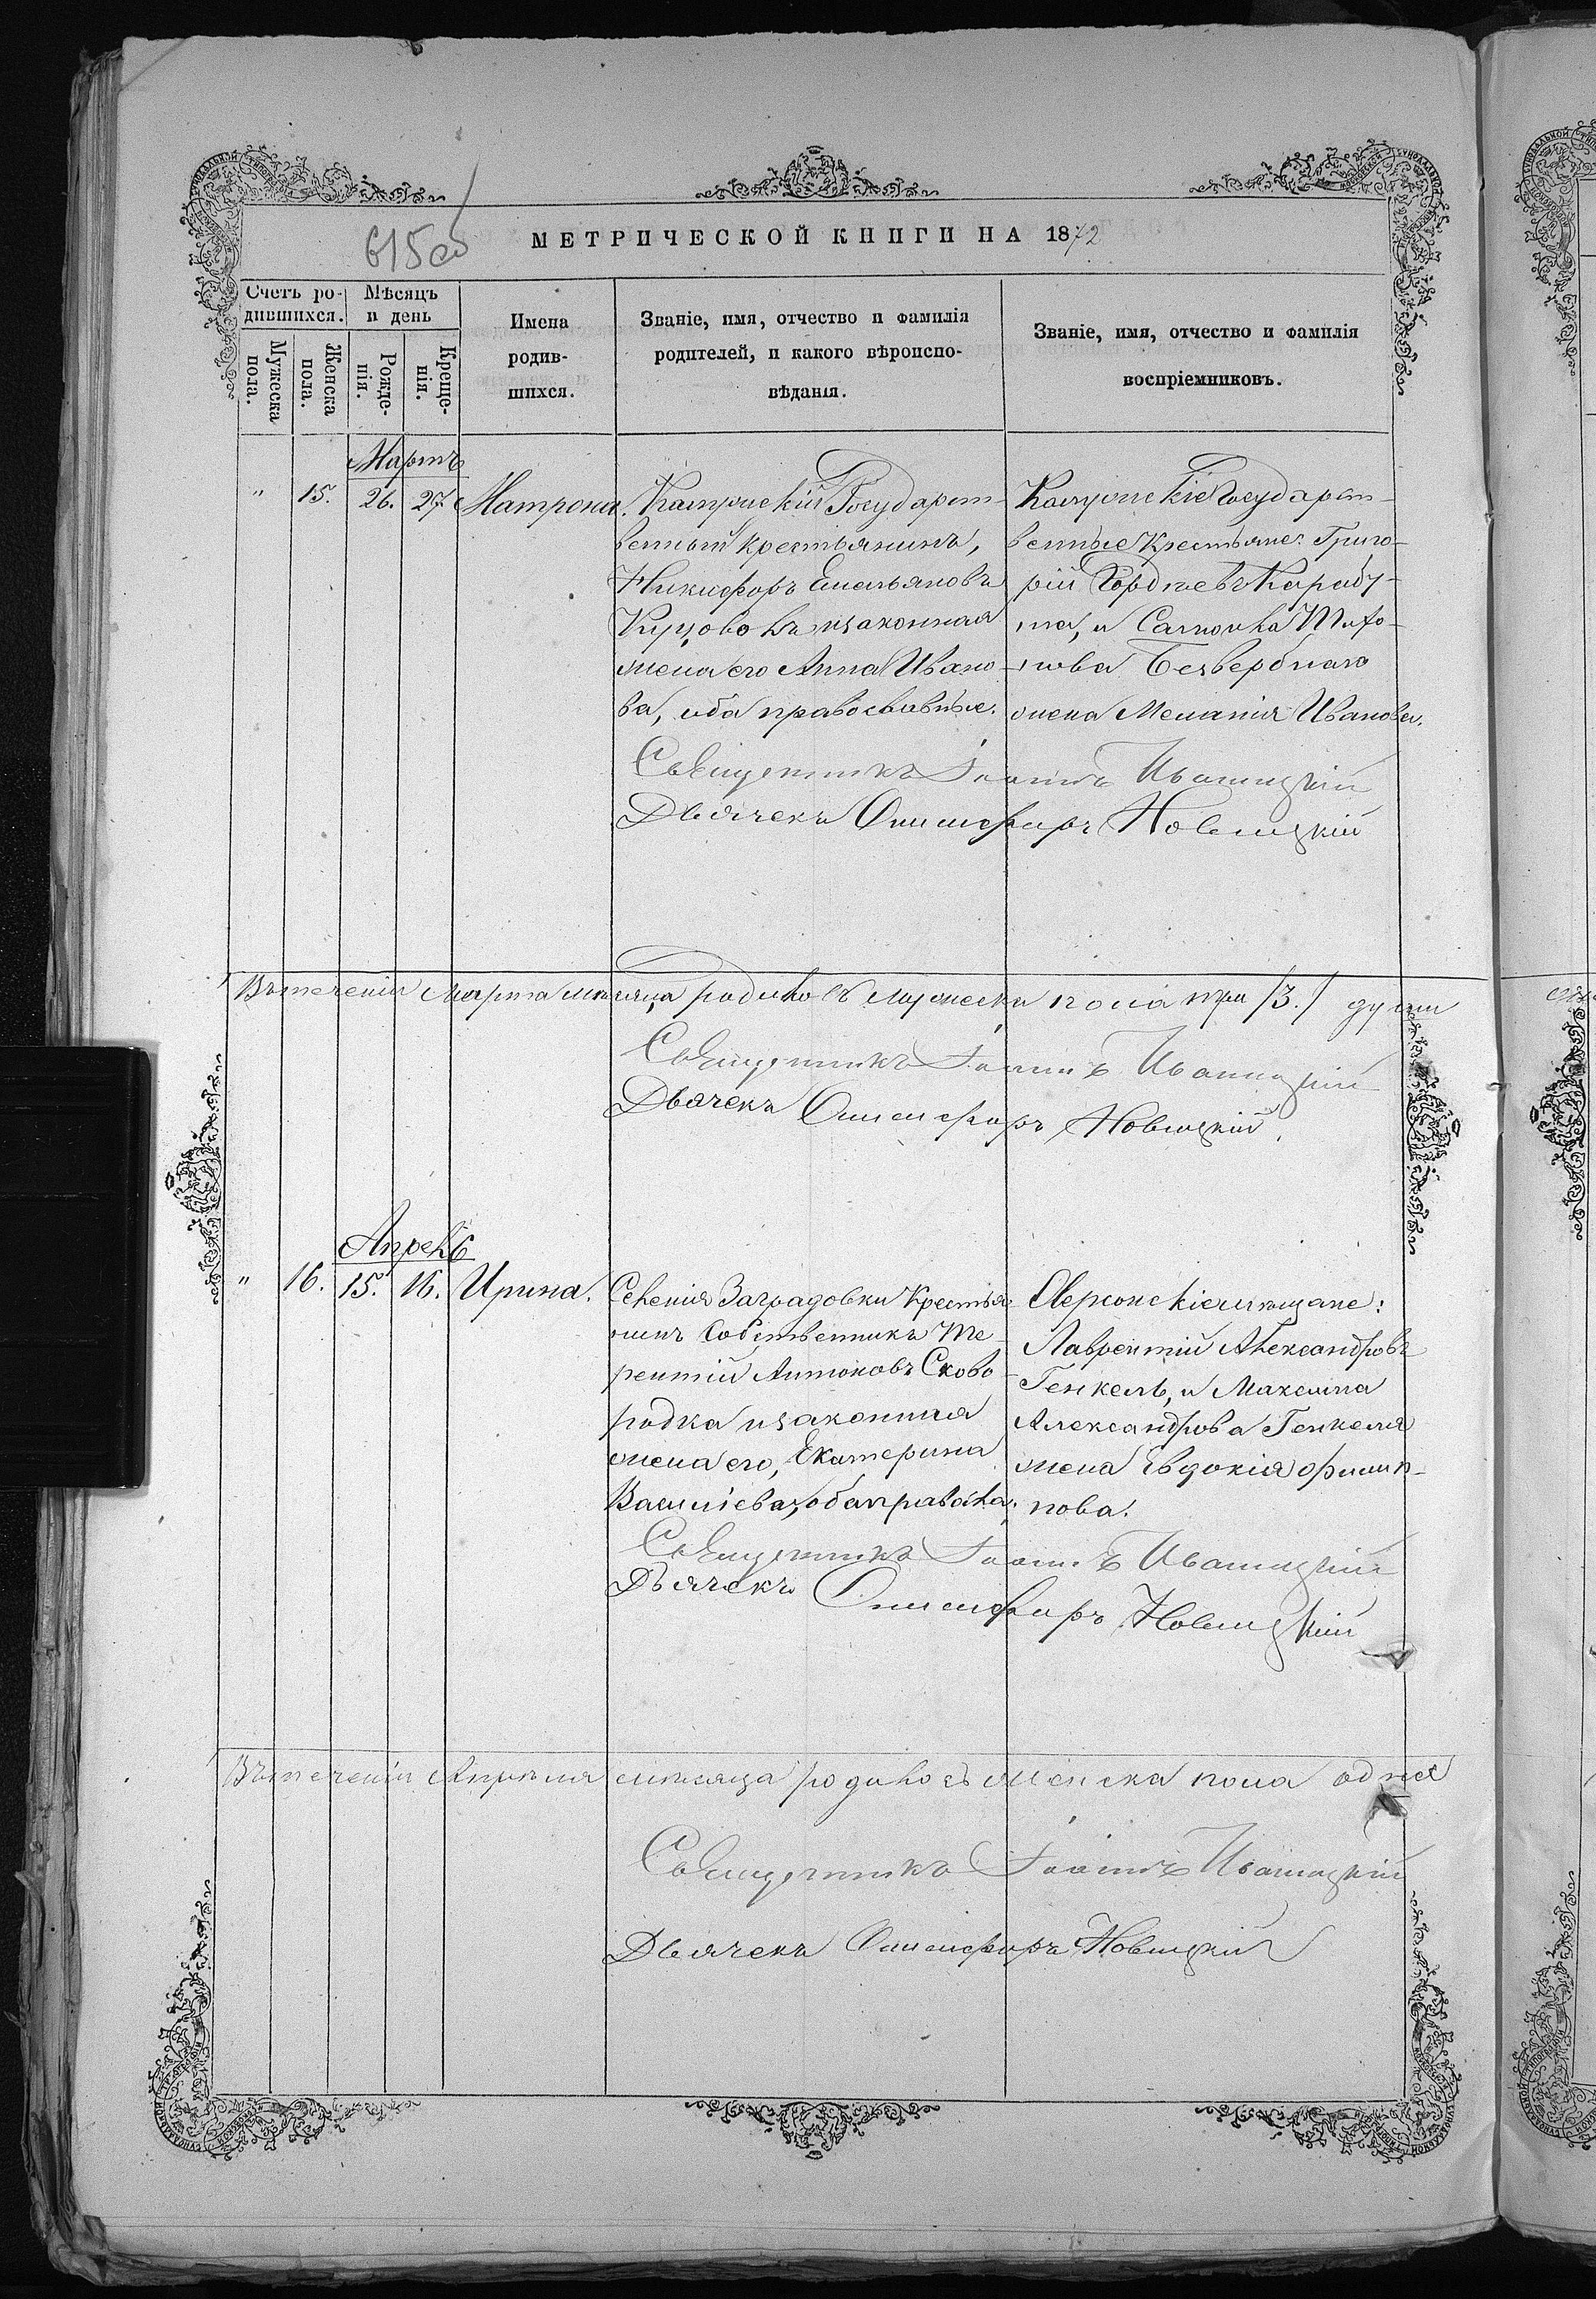 615об
МЕТРИЧЕСКОЙ КНИГИ НА 1872
Счетъ ро-
дившихся.
Мужеска
пола.
Женска
пола.
Мѣсяцъ
и день
Рожде-
нія.
Креще-
нія.
Имена
родив-
шихся.
Званіе, имя, отчество и фамилія
родителей, и какого вѣроиспо-
вѣданія.
Званіе, имя, отчество и фамилія
воспріемниковъ.
Мартъ
" 15. 26. 27. Матрона.
Государст-
венный крестьянинъ,
Никифоръ Емельяновъ
и законная
жена его Анна Ивано-
ва, оба православные.
Государст-
венные крестьяне: Григо-
рій Гордѣевъ
Безвербнаго
жена Меланія Иванова.
Священникъ Іоаннъ Ивашицкій
Дьячекъ Онисифоръ Новицкій
Въ теченіи Марта мѣсяца родилось мужеска пола три /3./ души
Священникъ Іоаннъ Ивашицкій
Дьячекъ Онисифоръ Новицкій
Апрель
" 16. 15. 16. Ирина.
Селенія Заградовки Крестья-
нинъ Собственникъ Те-
рентій Антоновъ Сково-
родка и законная
жена его, Екатерина
Василіева, оба правосла.
Херсонскіе мѣщане:
Лаврентій Александровъ
Генкель, и Максима
Александрова Генкеля
жена Евдокія Филип-
пова.
Священникъ Іоаннъ Ивашицкій
Дьячекъ Онисифоръ Новицкій
Въ теченіи Апрѣля мѣсяца родилось женска пола одна
Священникъ Іоаннъ Ивашицкій
Дьячекъ Онисифоръ Новицкій